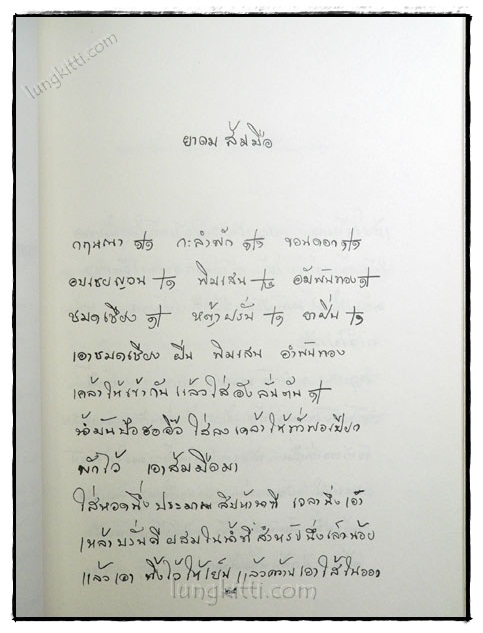 lungkitti.com
ยาดม ส้มมือ
กฤษณา กะลำพัก ขอนดอก
อบเชยญวน พิมเสน อำพันทอง
ชมดเชียง หญ้าฝรั่น ยาฝิ่น
เอาชมดเชียง ฝิ่น พิมเสน อำพันทอง
เคล้าให้เข้ากัน แล้วใส่
น้ำมัน ใส่ลง เคล้าให้ทั่วพอเปียก
พักไว้ เอาส้มมือมา
ใส่หวดนึ่ง ประมาณ สิบห้านาที เวลานึ่งเอา
เหล้าบรั่นดี ผสมในน้ำที่สำหรับนึ่งเล็กน้อย
แล้วเอา ทิ้งไว้ให้เย็น แล้วคว้าน เอาไส้ในออก
lungkitti.com